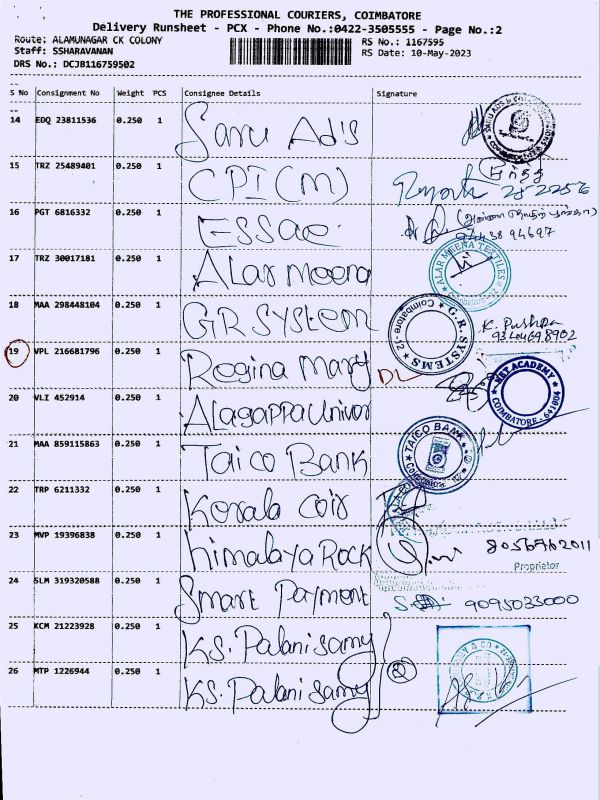 THE PROFESSIONAL COURIERS, COIMBATORE
Delivery Runsheet - PCX - Phone No.:0422-3505555 - Page No.:2
Route: ALAMUNAGAR CK COLONY
Staff: SSHARAVANAN
DRS No.: DCJB116759502
RS No.: 1167595
RS Date: 10-May-2023
S No Consignment No Weight PCS Consignee Details Signature
14 EDQ 23811536 0.250 1 Saru Ad's
15 TRZ 25489401 0.250 1 CPI (M)
16 PGT 6816332 0.250 1 ESSae
94438 94697
17 TRZ 30017181 0.250 1 Alar meena
ALAR MEENA TEXTILES
18 MAA 298448104 0.250 1 GR SYSTEM
G.R. SYSTEMS Coimbatore-12
K. Pushpa
19 VPL 216681796 0.250 1 Regina Mary DL
NET ACADEMY COIMBATORE - 641004
20 VLI 452914 0.250 1 Alagappa Univer
21 MAA 859115863 0.250 1 Taico Bank
TAICO BANK
22 TRP 6211332 0.250 1 Kerala Coir
23 MVP 19396838 0.250 1 himalaya Rock
8056762011
Proprietor
24 SLM 319320588 0.250 1 Smart Payment
9095033000
25 KCM 21223928 0.250 1 KS. Palanisamy
26 MTP 1226944 0.250 1 KS. Palanisamy
2